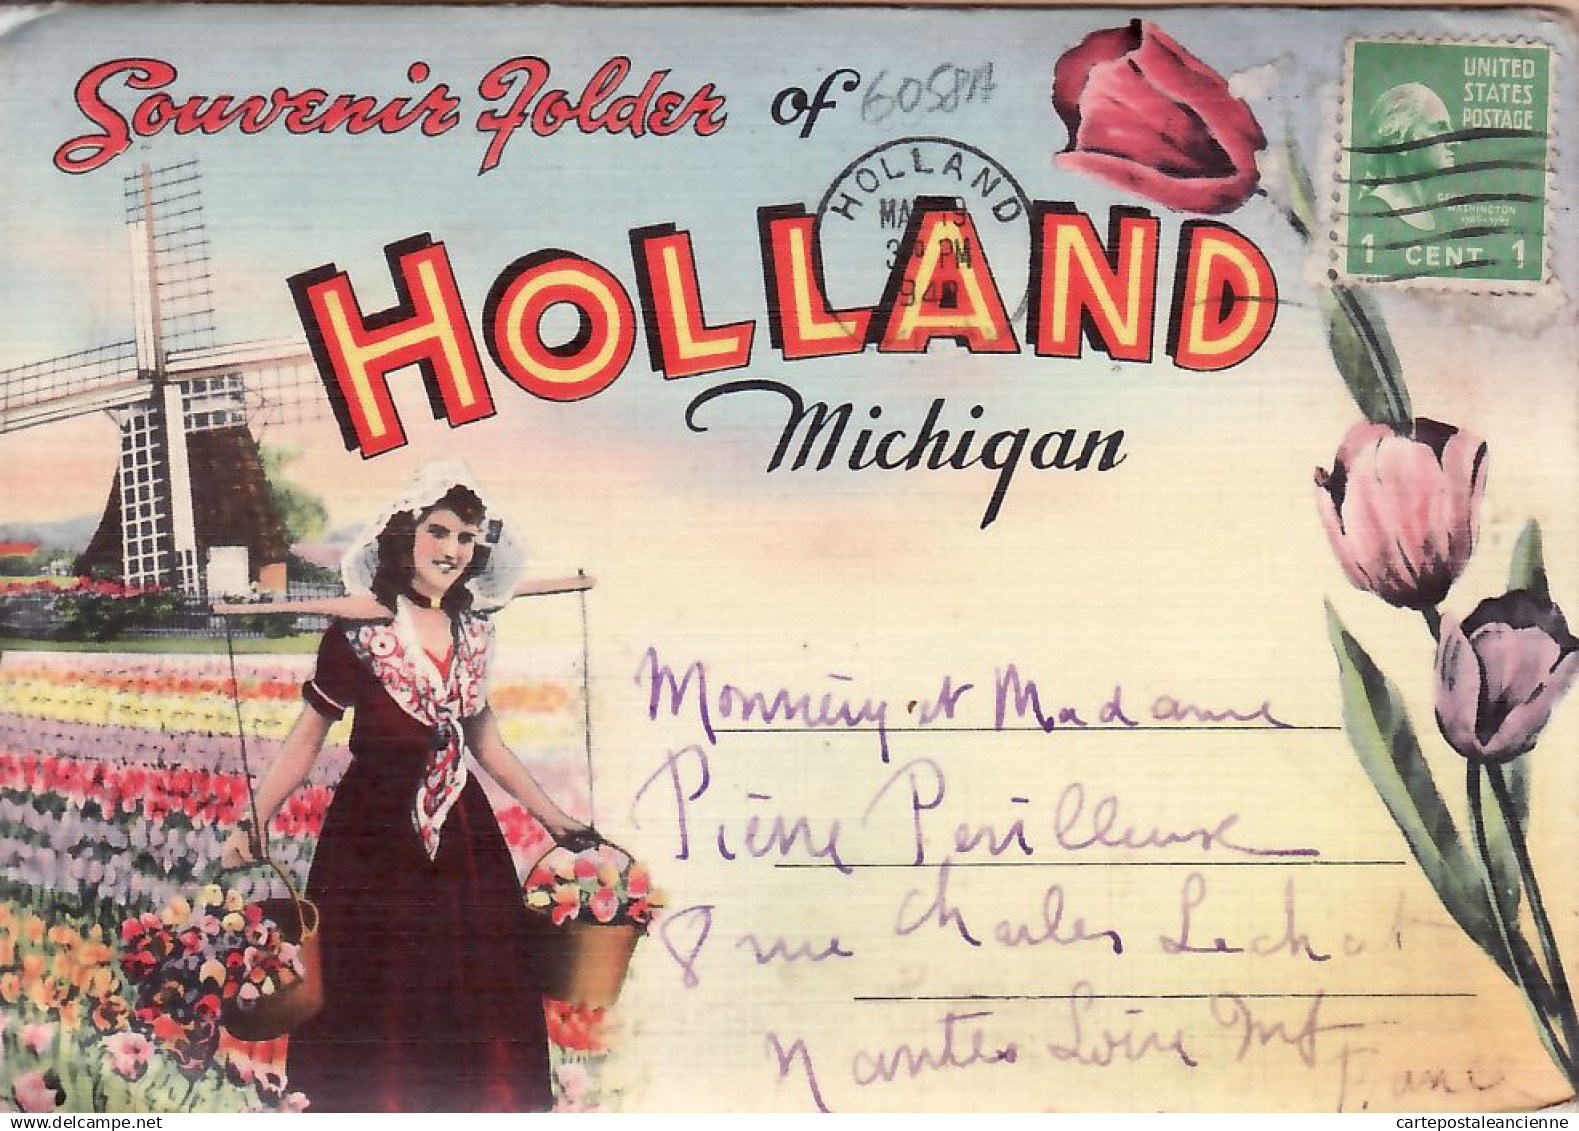 Souvenir Folder of 605PA
HOLLAND
Michigan
UNITED
STATES
POSTAGE
WASHINGTON
1 CENT 1
HOLLAND
19
PM
Monsieur et Madame
Pierre Perilleux
8 rue Charles Lechat
Nantes Loire Inf
France
cartepostaleancienne